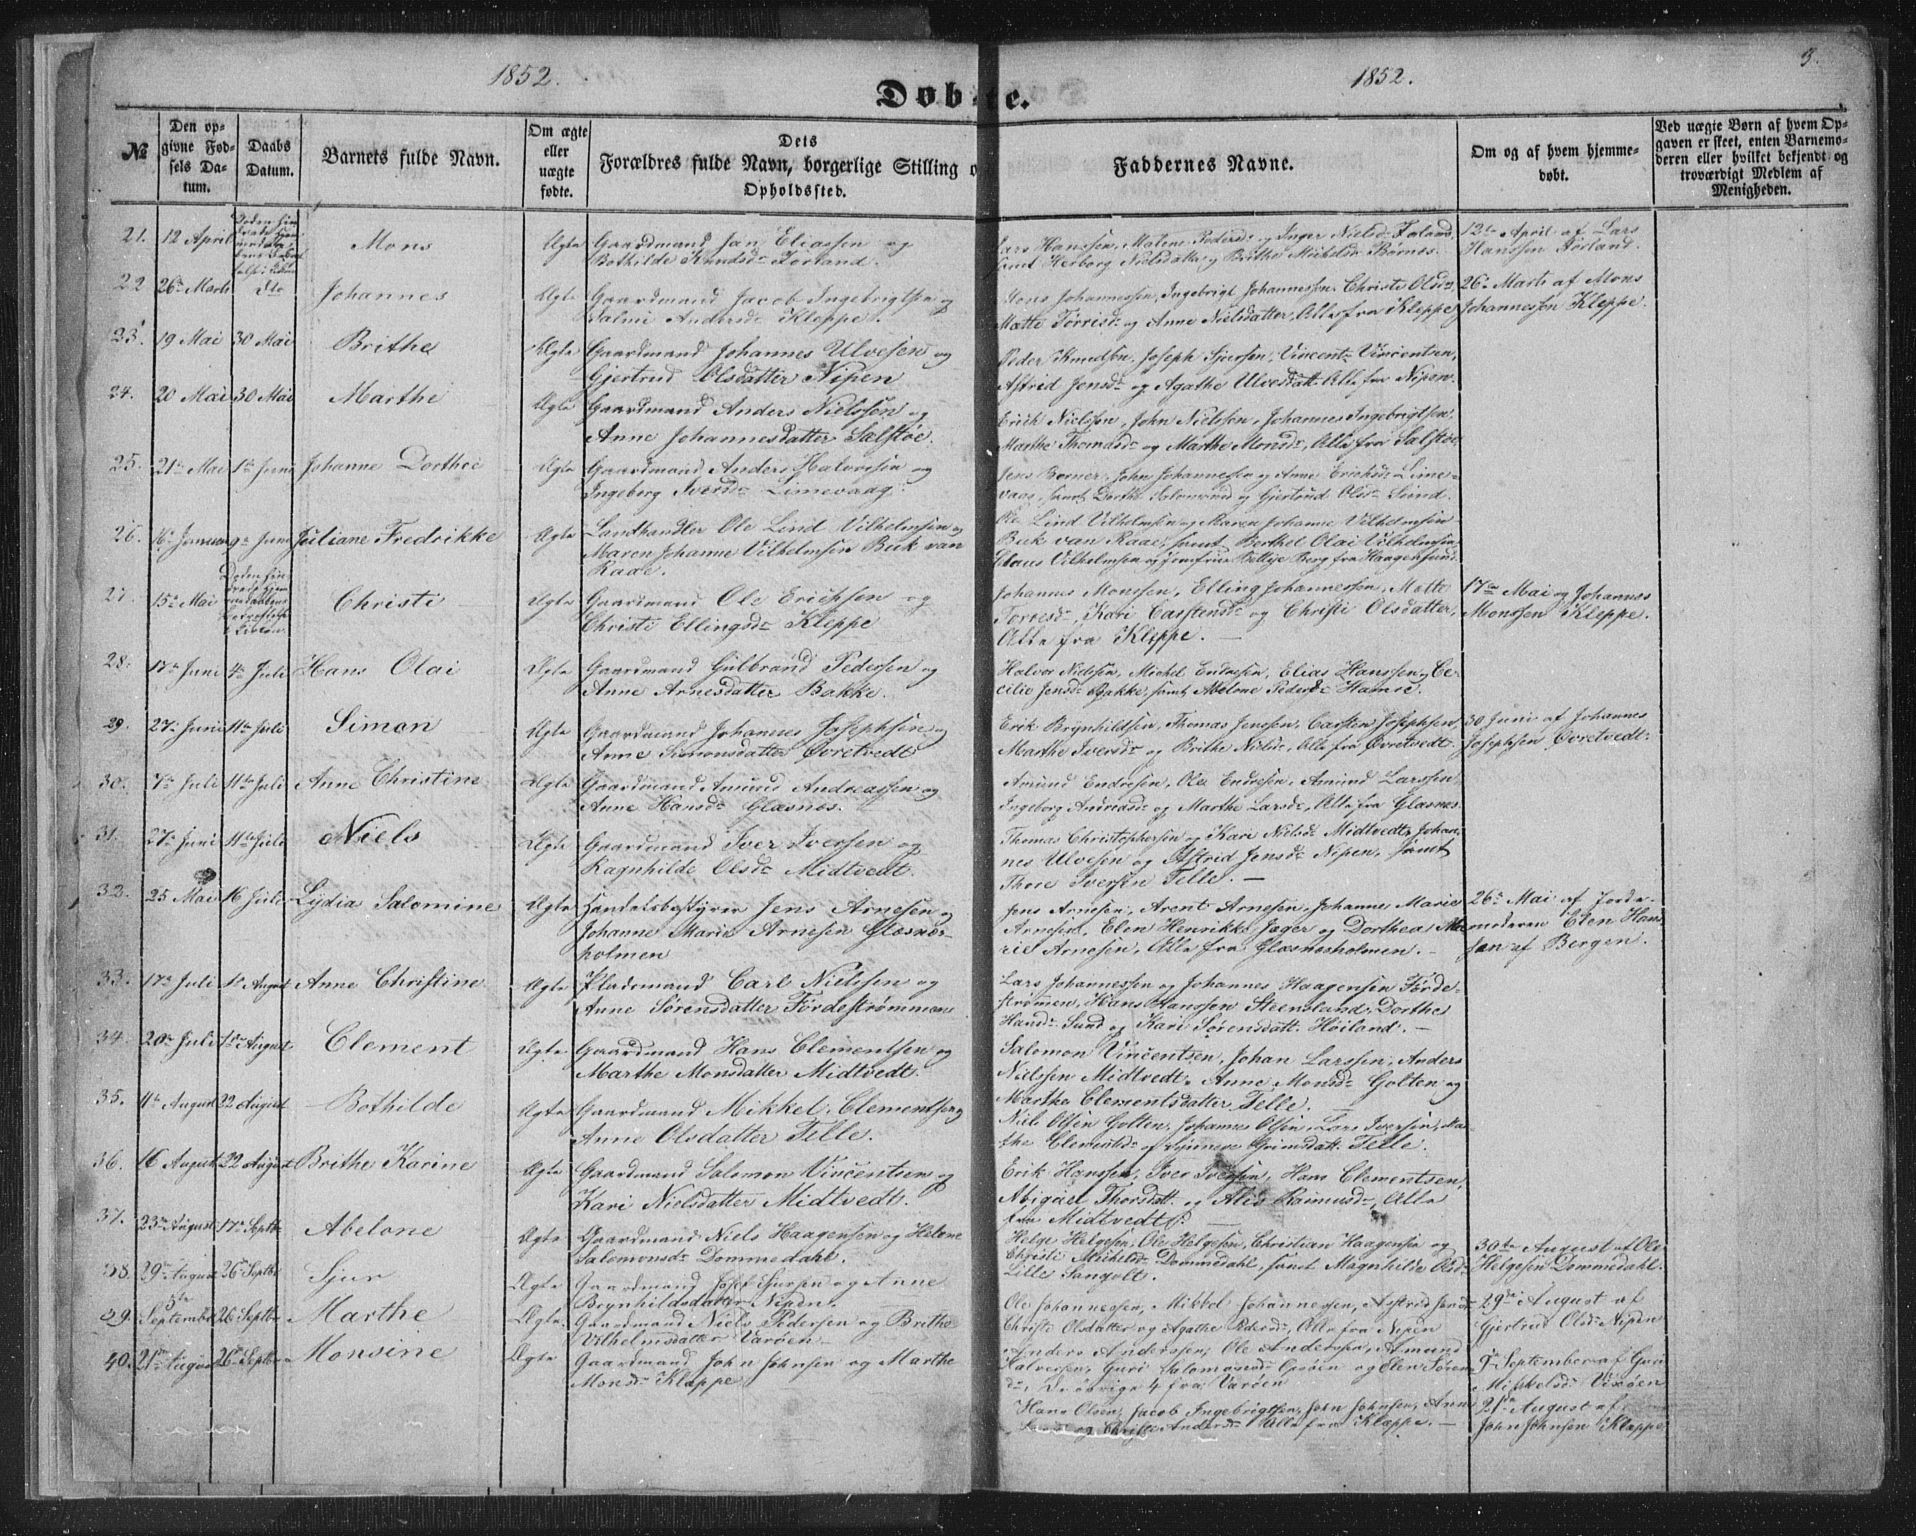 1852.
Døbte.
1852.
3.
№
Den opgivne Fødsels Datum.
Daabs Datum.
Barnets fulde Navn.
Om ægte eller uægte fødte.
Dets Forældres fulde Navn, borgerlige Stilling o
Opholdssted.
Faddernes Navne.
Om og af hvem hjemmedøbt.
Ved uægte Børn af hvem Opgaven er skeet, enten Barnemoderen eller hvilket bekjendt og troværdigt Medlem af Menigheden.
21. 12 April Mons Ægte Gaardmand Jan Eliassen og
Bothilde Knudsd. Førland.
Lars Hanssen, Malene Pedersd. og Inger Nielsd. Førland,
samt Herborg Nielsdatter og Brithe Mickelsd. Børnes.
12te April af Lars
Hanssen Førland.
22 26de Marts dto Johannes Ægte Gaardmand Jacob Ingebrigtsen og
Malni Andersd. Kleppe.
Mons Johannessen, Ingebrigt Johannessen, Christi Olsd.
Mette Torrisd. og Anne Nielsdatter, Alle fra Kleppe
26. Marts af Mons
Johannessen Kleppe.
23. 19 Mai 30 Mai Brithe Ægte Gaardmand Johannes Ulvesen og
Gjertrud Olsdatter Nipen
Peder Knudsen, Joseph Sjursen, Vincent Vincentsen,
Astrid Jensd. og Agathe Ulvesdatt. Alle fra Nipen.
24. 20 Mai 30 Mai Marthe Ægte Gaardmand Anders Nielssen og
Anne Johannesdatter Salstøe.
Erich Nielssen, John Nielssen, Johannes Ingebrigtsen,
Marthe Thomasd. og Marthe Monsd., Alle fra Salstøe
25. 21de Mai 1ste Juni Johanne Dorthea Ægte Gaardmand Anders Halvorsen og
Ingeborg Iversd. Limevaag.
Jens Børner, John Johannessen og Anne Erichsd. Lime-
vaag, samt Dorthe Aslamund og Gjertrud Olsd. Sund.
26. 16. Januar 9de Juni Juliane Fredrikke Ægte Landhandler Ole Lind Vilhelmsen og
Maren Johanne Vilhelmsen Buk van
Raae.
Ole Lind Vilhelmsen og Maren Johanne Vilhelmsen
Buk van Raae, samt Berthel Olai Vilhelmsen,
Claus Vilhelmsen og Jomfrue Bollise Berg fra Haagensund.
27. 15de Mai Christi Ægte Gaardmand Ole Erichsen og
Christi Ellingsd. Kleppe
Johannes Monssen, Elling Johannessen, Mette
Torresd., Kari Carstensd. og Christi Olsdatter,
Alle fra Kleppe.
17de Mai og Johannes
Monssen Kleppe.
28. 17de Juni 4de Juli Hans Olai Ægte Gaardmand Gulbrand Pedersen og
Anne Arnesdatter Bakke.
Halvor Nielssen, Michel Endresen, Elias Hanssen, Ce-
cilie Jensd. Bakke, samt Abelone Pedersd. Hamre.
29. 27de Juni 11te Juli Simon Ægte Gaardmand Johannes Josephsen og
Anne Simonsdatter Øvretvedt
Erik Brynhildsen, Thomas Jenssen, Carsten Josephsen,
Marthe Iversd. og Brithe Nielsd., Alle fra Øvretvedt.
30 Juni af Johannes
Josephsen Øvretvedt.
30. 7de Juli 11te Juli Anne Christine Ægte Gaardmand Amund Andreassen og
Anne Hansd. Glæsnes.
Amund Endresen, Ole Endresen, Amund Larssen
Ingeborg Andreasd. og Marthe Larsd., Alle fra Glæsnes.
31. 27de Juni 11te Juli Niels Ægte Gaardmand Iver Iversen og
Ragnhilde Olsd. Midtvedt.
Thomas Christophersen og Kari Nielsd. Midtvedt, Johan-
nes Ulvesen og Astrid Jensd. Nipen, samt
Thore Iversen Telle.
32. 25 Mai 16 Juli Lydia Salomine Ægte Handelsbestyrer Jens Arnesen og
Johanne Marie Arnesen Glæsnes-
holmen
Jens Arnesen, Arent Arnesen, Johannes Marie
Arnesen, Elen Henrikke Jæger og Dorthea Ma-
rie Arnesen, Alle fra Glæsnesholmen.
26de Mai af Jorde-
moderen Elen Han-
sen af Bergen.
33. 17de Juli 1ste August Anne Christine Ægte Pladsmand Carl Nielssen og
Anne Sørensdatter Førdestrømmen
Lars Johannessen og Johannes Haagensen Førde-
strømmen, Hans Hanssen Steensland, Dorthe
Hansd. Sund og Kari Sørensdatt. Høiland.
34. 20de Juli 1ste August Clement Ægte Gaardmand Hans Clementsen og
Marthe Monsdatter Midtvedt.
Salomon Vincentsen, Johan Larssen, Anders
Nielssen Midtvedt, Anne Monsd. Golten og
Marthe Clementsdatter Telle.
35. 11te August 22 August Bothilde Ægte Gaardmand Mikkel Clementsen og
Anne Olsdatter Telle.
Niels Olsen Golten, Johannes Olsen, Lars Iversen, Mar-
the Clemetsd. og Synneve Grimsdatt. Telle.
36. 16 August 22 August Brithe Karine Ægte Gaardmand Salomon Vincentsen og
Kari Nielsdatter Midtvedt.
Erik Hanssen, Iver Iversen, Hans Clementsen,
Abigael Thorsdatt. og Alis Rasmusd., Alle
fra Midtvedt.
37. 23de August 17de Septbr Abelone Ægte Gaardmand Niels Haagensen og Helene
Salomonsd. Dommedahl.
Helge Helgesen, Ole Helgesen, Christian Haagensen og
Christi Michelsd. Dommedahl, samt Magnhilde Olsd.
Lille Sangolt.
30te August af Ole
Helgesen Dommedahl.
38. 29de August 26de Septbr Sjur Ægte Gaardmand Josef Sjursen og Anne
Brynhildsdatter Nipen.
Ole Johannessen, Mikkel Johannessen, Astrid Jensd.
Christi Olsdatter og Agathe Pedersd., Alle fra Nipen
29de August af
Gjertrud Olsd. Nipen
39. 5te September 26 Septbr Marthe Ægte Gaardmand Niels Pedersen og Brithe
Vilhelmsdatter Varøen
Anders Anderssen, Ole Anderssen, Amund
Halversen, Guri Salomonsd. og Elen Søren
d., De øvrige 4 fra Varøen
9de September af Guri
Mikkelsd. Vixøen
40. 21de August 26de Septbr Monsine Ægte Gaardmand John Johnsen og Marthe
Monsd. Kleppe
Hans Olsen, Jacob Ingebrigtsen, John Johnsen, Anne
og Christi Andersd. Alle fra Kleppe.
21de August af
John Johnsen Kleppe